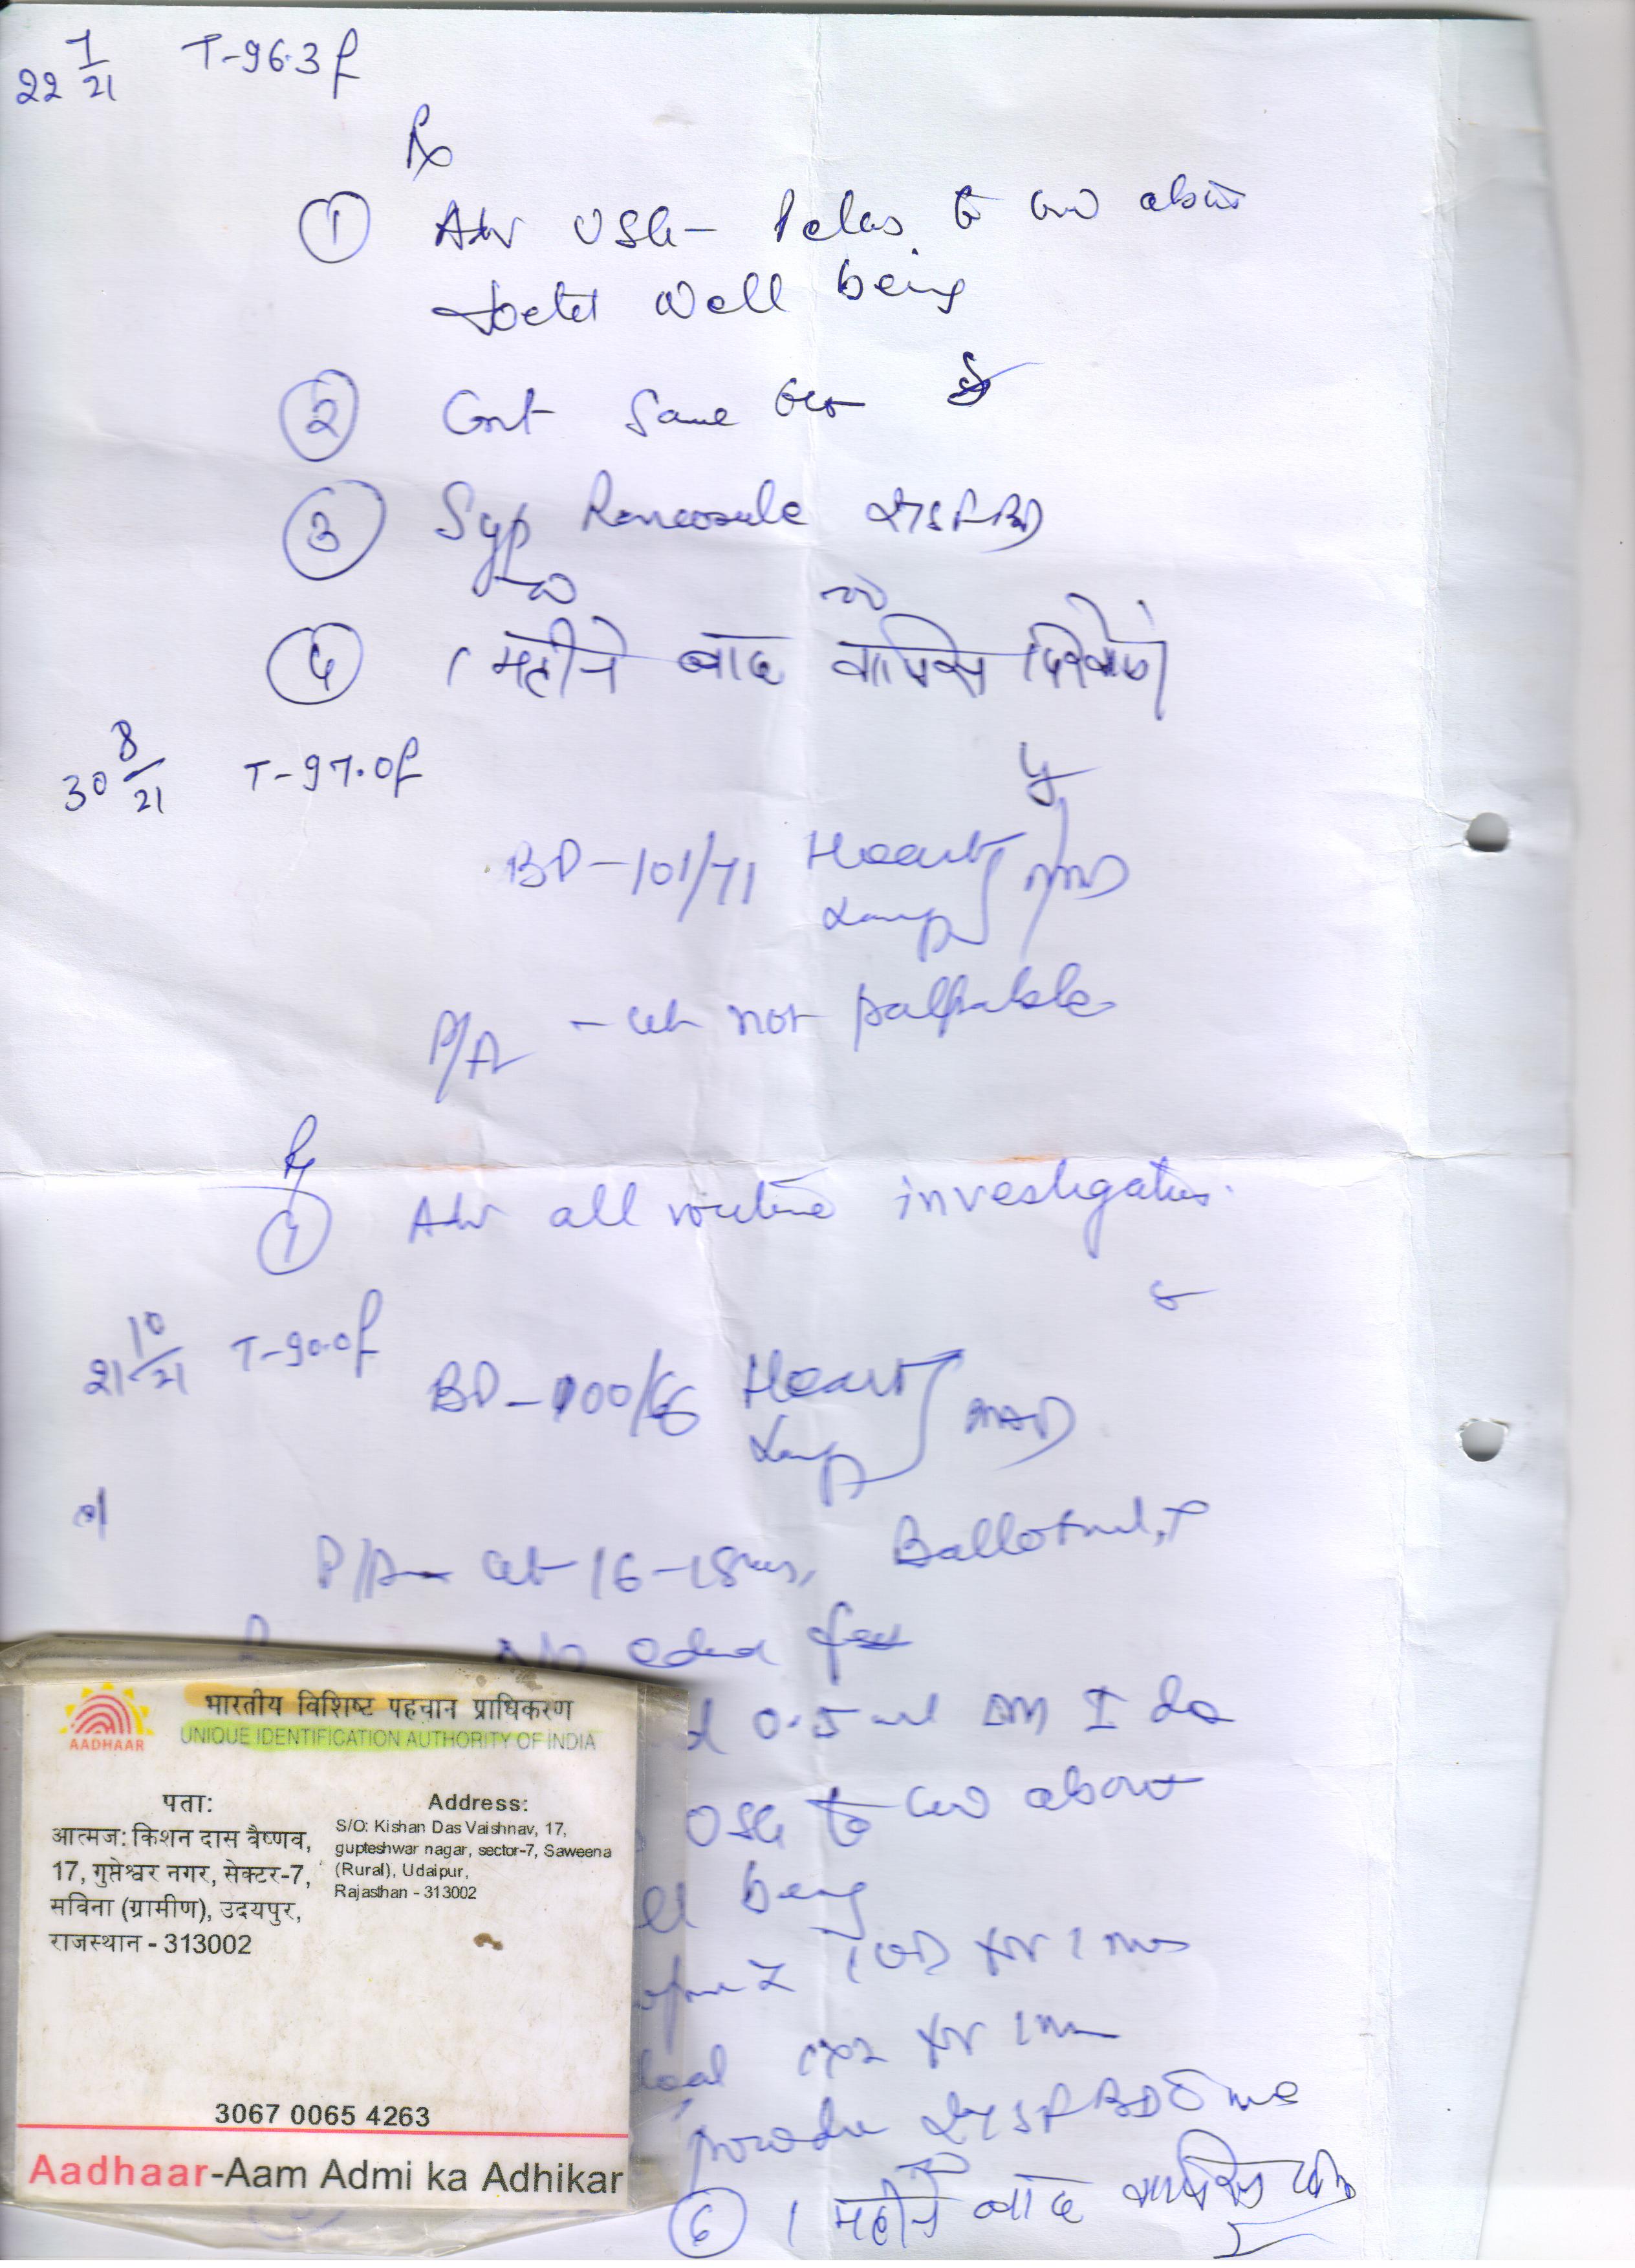 22 7/21 T-96.3f
Rx
① Adv USG - Pelvis to know about
foetal Well being
② Cont Same
③ Syp 2TSF BD
④ 1 महीने बाद वापिस दिखायें
30 8/21 T-97.0f
BP-101/71 Heart
Lungs } NAD
P/A - ut not palpable
Rx
① Adv all routine investigations.
21 10/21 T-90.0f
BP-100/66 Heart
Lungs } NAD
P/A - ut 16-18 wks, Ballotment, +
No edema feet
0.5 ml IM I do
USG to know about
being
1OD for 1 mon
1x2 for 1 mon
powder 2TSF BD c milk
⑥ 1 महीने बाद वापिस
AADHAAR
भारतीय विशिष्ट पहचान प्राधिकरण
UNIQUE IDENTIFICATION AUTHORITY OF INDIA
पता:
आत्मज: किशन दास वैष्णव,
17, गुप्तेश्वर नगर, सेक्टर-7,
सविना (ग्रामीण), उदयपुर,
राजस्थान - 313002
Address:
S/O: Kishan Das Vaishnav, 17,
gupteshwar nagar, sector-7, Saweena
(Rural), Udaipur,
Rajasthan - 313002
3067 0065 4263
Aadhaar-Aam Admi ka Adhikar